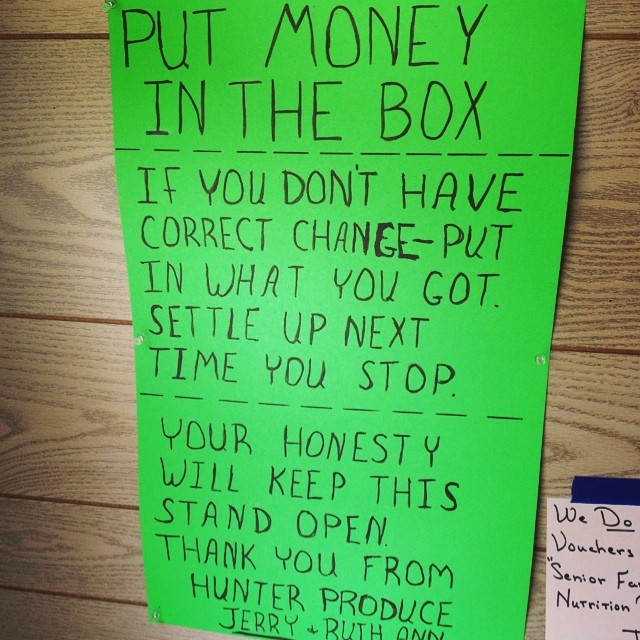 PUT MONEY
IN THE BOX
IF YOU DON'T HAVE
CORRECT CHANGE-PUT
IN WHAT YOU GOT.
SETTLE UP NEXT
TIME YOU STOP.
YOUR HONESTY
WILL KEEP THIS
STAND OPEN.
THANK YOU FROM
HUNTER PRODUCE
JERRY + RUTH ANN
We Do
Vouchers
"Senior
Nutrition